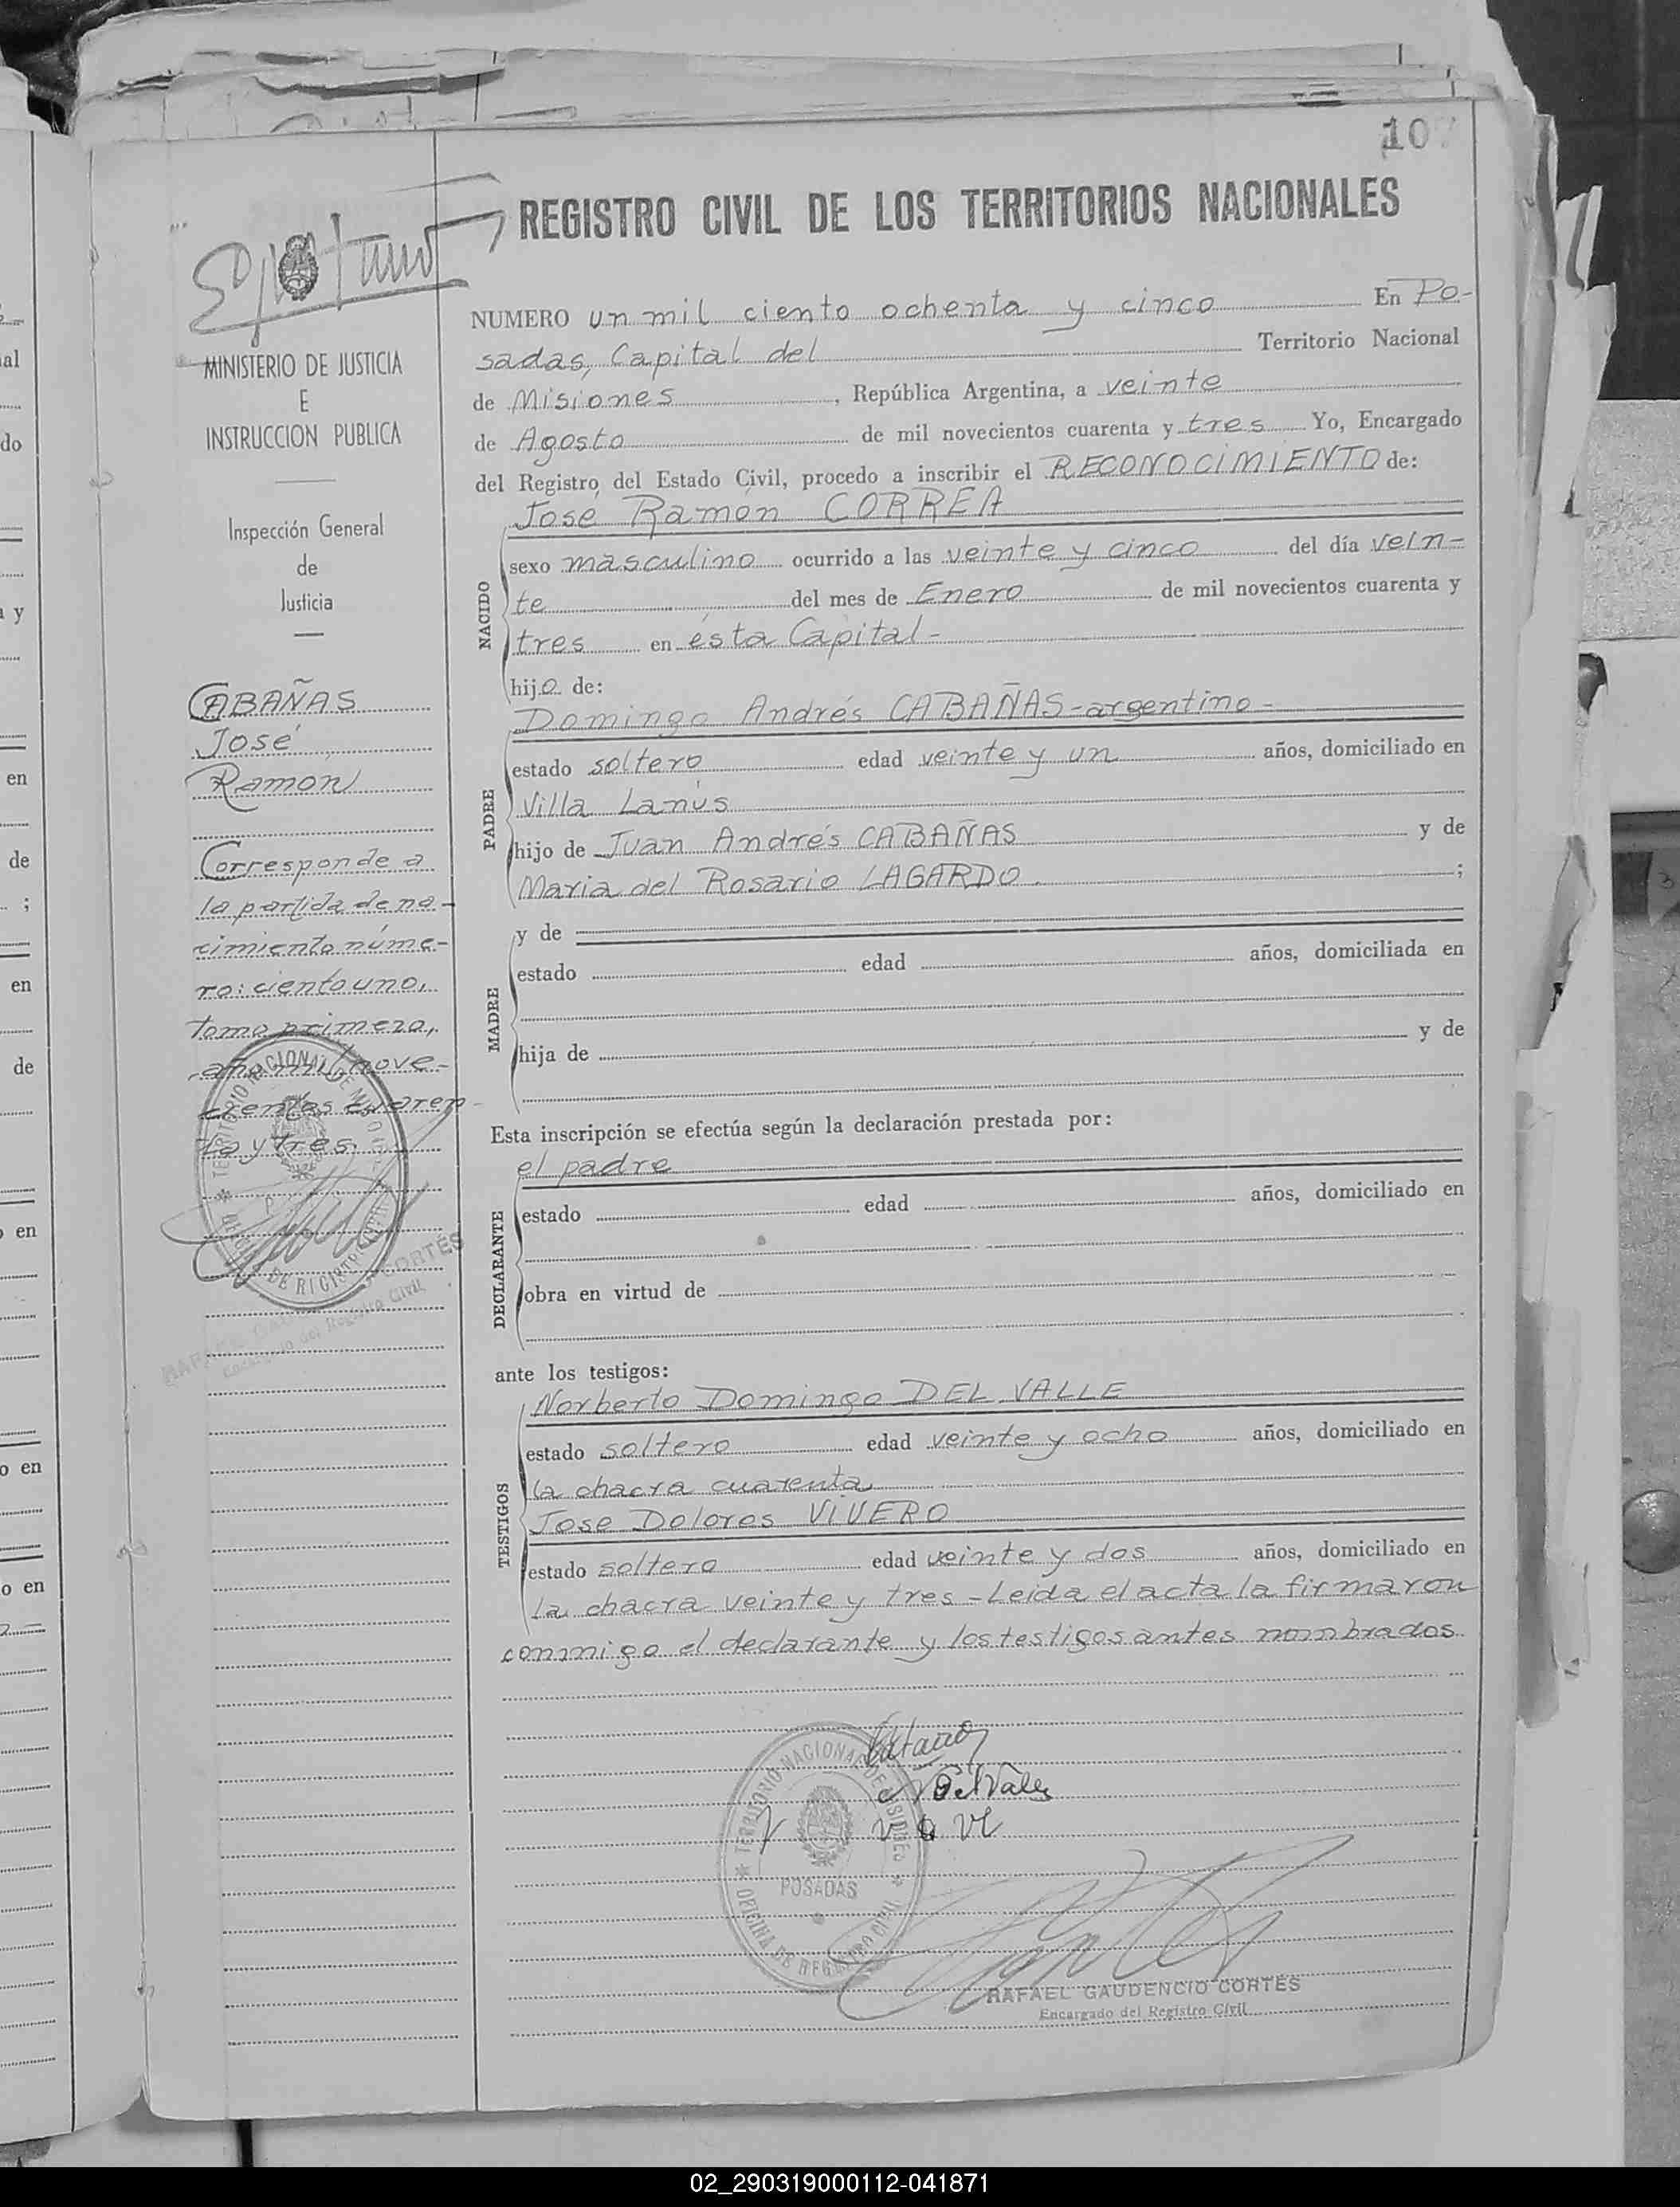 107
REGISTRO CIVIL DE LOS TERRITORIOS NACIONALES
MINISTERIO DE JUSTICIA
E
INSTRUCCION PUBLICA
Inspección General
de
Justicia
CABAÑAS
José
Ramón
Corresponde a
la partida de na-
cimiento núme-
ro: ciento uno,
tomo primero,
año mil nove-
cientos cuaren-
ta y tres.
CORTÉS
Encargado del Registro Civil
NUMERO un mil ciento ochenta y cinco En Po-
sadas, Capital del Territorio Nacional
de Misiones, República Argentina, a veinte
de Agosto de mil novecientos cuarenta y tres Yo, Encargado
del Registro del Estado Civil, procedo a inscribir el RECONOCIMIENTO de:
NACIDO
José Ramón CORREA
sexo masculino ocurrido a las veinte y cinco del día vein-
te del mes de Enero de mil novecientos cuarenta y
tres en ésta Capital-
hijo de:
PADRE
Domingo Andrés CABAÑAS-argentino-
estado soltero edad veinte y un años, domiciliado en
Villa Lanús
hijo de Juan Andrés CABAÑAS y de
Maria del Rosario LAGARDO. ;
MADRE
y de
estado edad años, domiciliada en
hija de y de
Esta inscripción se efectúa según la declaración prestada por:
DECLARANTE
el padre
estado edad años, domiciliado en
obra en virtud de
ante los testigos:
TESTIGOS
Norberto Domingo DEL VALLE
estado soltero edad veinte y ocho años, domiciliado en
la chacra cuarenta
Jose Dolores VIVERO
estado soltero edad veinte y dos años, domiciliado en
la chacra veinte y tres-Leida el acta la firmaron
conmigo el declarante y los testigos antes nombrados
TERRITORIO NACIONAL DE MISIONES
POSADAS
OFICINA DE REGISTRO CIVIL
N Del Valle
RAFAEL GAUDENCIO CORTÉS
Encargado del Registro Civil
al
do
a y
en
de
;
en
de
o en
o en
o en
02_290319000112-041871